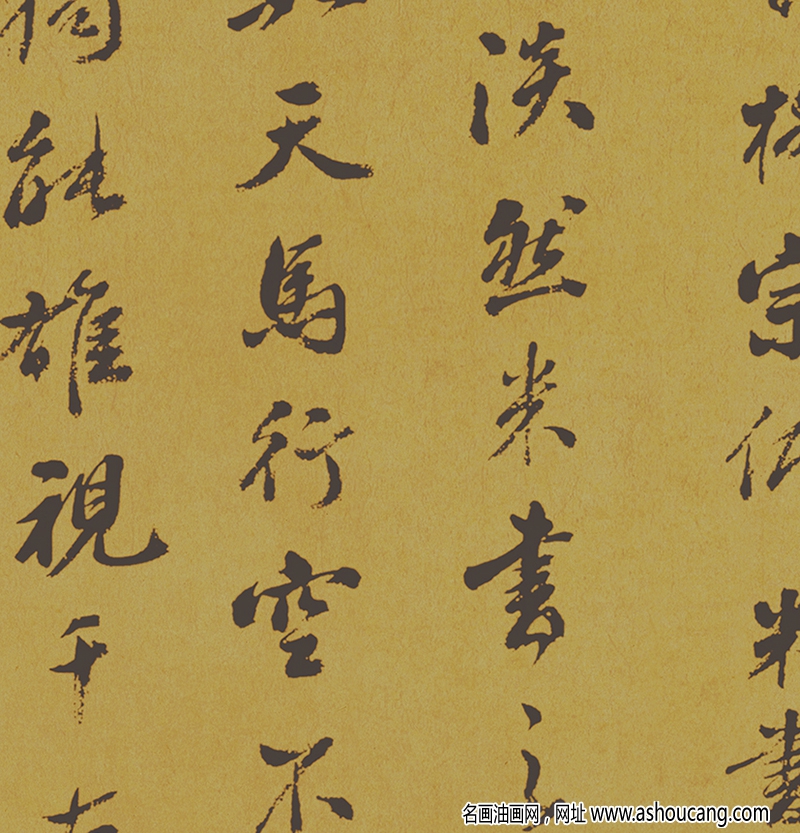 宗書
淡然米書之
天馬行空不
能雄視千
名画油画网，网址 www.ashoucang.com